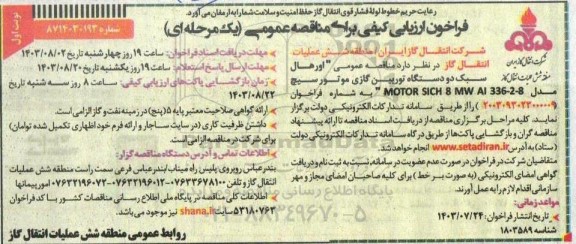 رعایت حریم خطوط لوله فشار قوی انتقال گاز حفظ امنیت و سلامت شما به ارمغان می‌آورد.
شماره ۸۷۱۴۰۳۰۱۹۳
نوبت اول
فراخوان ارزیابی کیفی برای مناقصه عمومی (یک مرحله ای)
شرکت انتقال گاز ایران
شرکت انتقال گاز ایران منطقه شش عملیات
انتقال گاز در نظر دارد مناقصه عمومی " اورهال
سبک دو دستگاه توربین گازی موتور سیچ
مدل MOTOR SICH 8 MW AI 336-2-8" به شماره فراخوان
را از طریق سامانه تدارکات الکترونیکی دولت برگزار
نماید. کلیه مراحل برگزاری مناقصه از دریافت اسناد مناقصه تا ارائه پیشنهاد
مناقصه گران و بازگشایی پاکت‌ها از طریق درگاه سامانه تدارکات الکترونیکی دولت
(ستاد) به آدرس www.setadiran.ir انجام خواهد شد.
متقاضیان شرکت در فراخوان در صورت عدم عضویت در سامانه، نسبت به ثبت نام و دریافت
گواهی امضای الکترونیکی (به صورت بر خط) برای کلیه صاحبان امضای مجاز و مهر
سازمانی اقدام لازم را به عمل آورند.
مواعد زمانی:
تاریخ انتشار فراخوان: ۱۴۰۳/۰۷/۲۴
شناسه ۱۸۰۳۵۸۹
مهلت دریافت اسناد فراخوان: ساعت ۱۹ روز چهارشنبه تاریخ ۱۴۰۳/۰۸/۰۲
مهلت ارسال پاسخ استعلام: ساعت ۱۹ روز یکشنبه تاریخ ۱۴۰۳/۰۸/۲۰
زمان بازگشایی پاکت‌های ارزیابی کیفی: ساعت ۸ روز سه شنبه تاریخ
۱۴۰۳/۰۸/۲۲
ارائه گواهی صلاحیت معتبر پایه ۵ (پنج) در زمینه نفت و گاز الزامی است.
داشتن ظرفیت کاری (در سایت ساجار و ارائه فرم خود اظهاری تکمیل شده توامان)
برای شرکت در مناقصه الزامی است.
اطلاعات تماس و آدرس دستگاه مناقصه گزار:
بندرعباس روبروی پلیس راه میناب/بندرعباس فرعی سمت راست منطقه شش عملیات
انتقال گاز و تلفن ۰۷۶۳۳۶۷۸۱۰۰-۰۷۶۳۲۱۹۶۰۱۲-۰۷۶۳۲۱۹۶۰۷۲ امور پیمانها
اطلاعات کلی مناقصه در پایگاه ملی اطلاع رسانی مناقصات کشور با کد فراخوان
سایت shana.ir نیز موجود می‌باشد.
روابط عمومی منطقه شش عملیات انتقال گاز